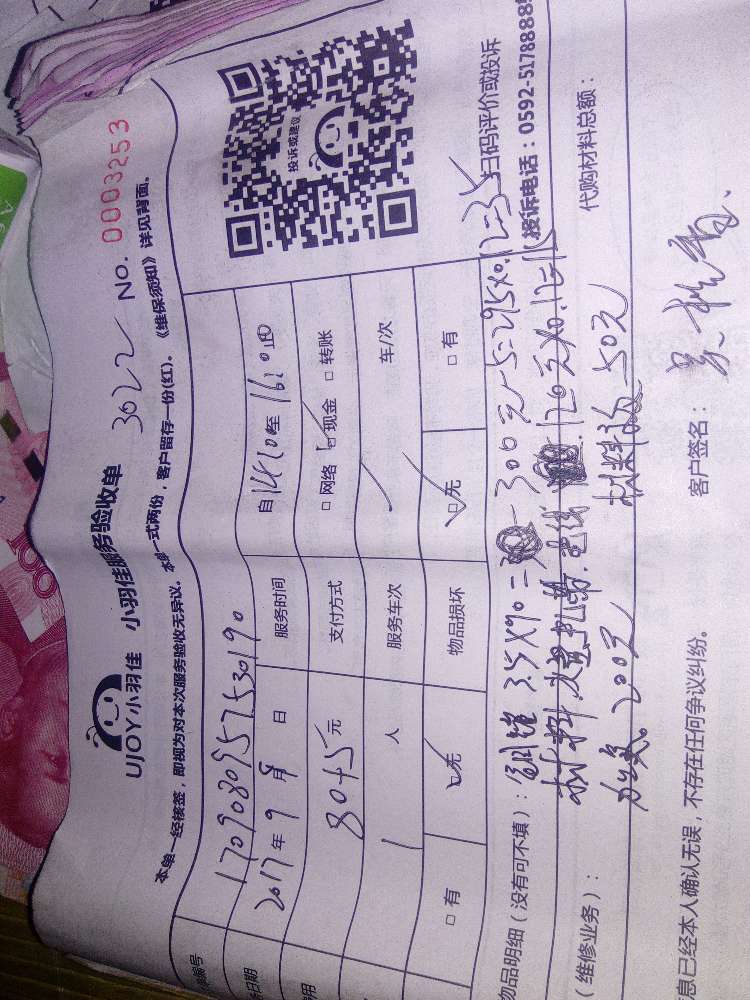 UJOY小羽佳 小羽佳服务验收单 3022 NO. 0003253
本单一经核签，即视为对本次服务验收无异议。本单一式两份，客户留存一份(红)。《维保须知》详见背面。
编号 1709080957530190
日期 2017年9月8日 服务时间 自14:10至16:20止
用 8045元 支付方式 □网络 ☑现金 □转账
1 人 服务车次 / 车/次
□有 ☑无 物品损坏 ☑无 □有
投诉或建议
扫码评价或投诉
投诉电话：0592-5178885
物品明细（没有可不填）： 3.5×90= 300元-5=295×0.12=35
材料 电线 120元×0.12=15
（维修业务）： 加氟 200元 材料款 50元 代购材料总额：
息已经本人确认无误，不存在任何争议纠纷。 客户签名：